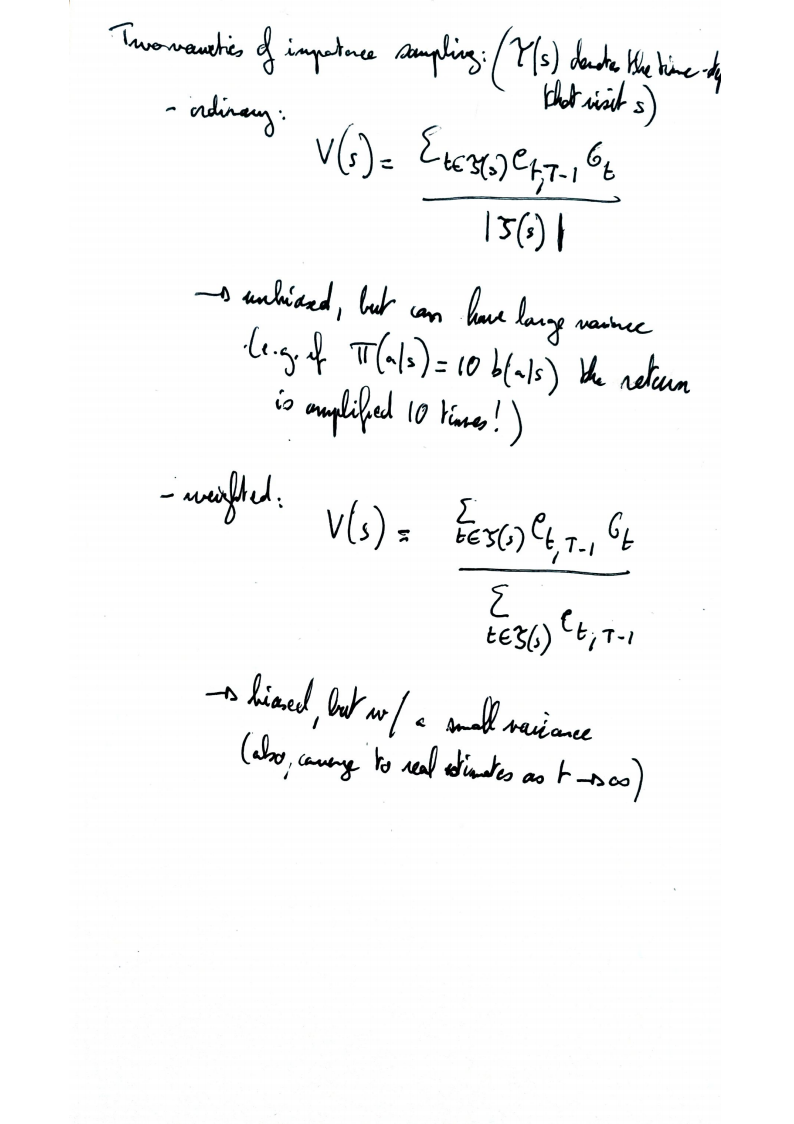 Two varieties of importance sampling: (Ƭ(s) denotes the time-
that visit s)
- ordinary:
V(s) = Σ_{t∈Ƭ(s)} ρ_{t,T-1} G_t
|Ƭ(s)|
→ unbiased, but can have large variance
(e.g. if π(a|s) = 10 b(a|s) the return
is amplified 10 times!)
- weighted:
V(s) = Σ_{t∈Ƭ(s)} ρ_{t,T-1} G_t
Σ_{t∈Ƭ(s)} ρ_{t,T-1}
→ biased, but w/ a small variance
(also, converge to real estimates as t → ∞)